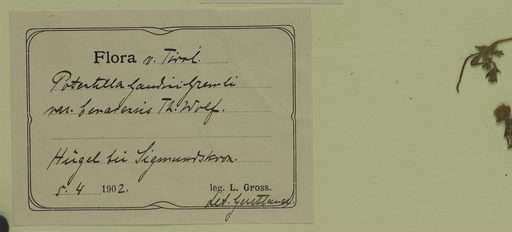 Flora v. Tirol.
Potentilla Gaudini Gremli
var. benacensis Th. Wolf.
Hügel bei Sigmundskron.
5. 4 1902.
leg. L. Gross.
det. Gerstlauer